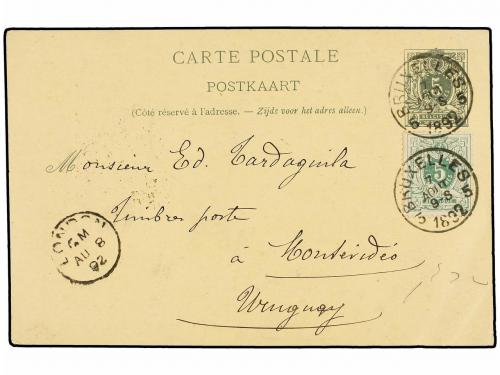 CARTE POSTALE
POSTKAART
(Côté réservé à l'adresse. — Zijde voor het adres alleen.)
5
BRUXELLES 5
1892
Monsieur Ed. Tardaguila
Timbres poste
à Montévidéo
Uruguay
5
BRUXELLES 5
7
AOUT
9-8
1892
LONDON
AU 8
92